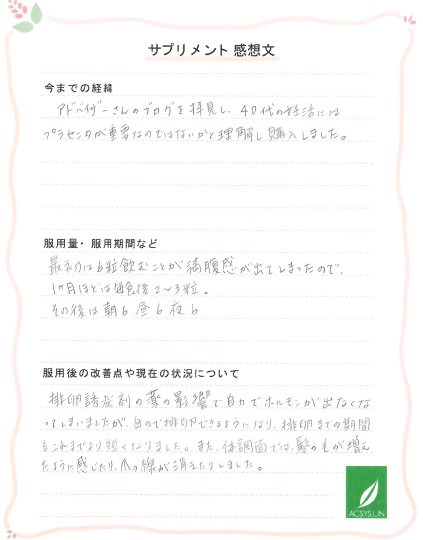 サプリメント 感想文
今までの経緯
アドバイザーさんのブログを拝見し、40代の妊活には
プラセンタが重要なのではないかと理解し購入しました。
服用量・服用期間など
最初は6粒飲むことが満腹感が出てしまったので、
1ヶ月ほどは毎食後2〜3粒。
その後は朝6 昼6 夜6
服用後の改善点や現在の状況について
排卵誘発剤の薬の影響で自力でホルモンが出なくな
ってしまいましたが、自力で排卵できるようになり、排卵までの期間
もこれまでより短くなりました。また、体調面では、髪の毛が増え
たように感じたり、爪の線が消えたりしました。
ACSYSUN